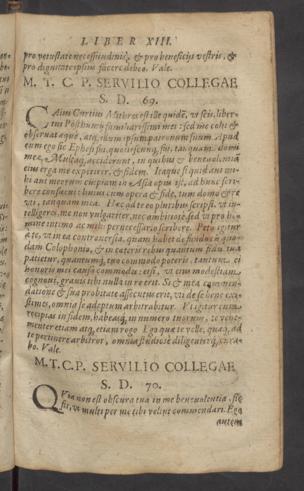 LIBER XIII.
pro vetustate necessitudinis, & pro beneficijs vestris, &
pro dignitate ipsius facere debeo. Vale.
M. T. C. P. SERVILIO COLLEGAE
S. D. 69.
CAius Curtius Mithres est ille quidē, vt scis, liber-
tus Posthumi familiarissimi mei: sed me colit &
obseruat aquè, atq, illum ipsum patronum suum. Apud
eum ego sic Ephesi fui, quotiescunq, fui, tanquam domi
meæ. Multaq, acciderunt, in quibus & beneuolentiā
eius erga me experirer, & fidem. Itaque si quid aut mi-
hi aut meorum cuipiam in Asia opus est, ad hunc scri-
bere consueui: huius cum opera & fide, tum domo & re
vti, tanquam mea. Hæc ad te eo pluribus scripsi, vt in-
telligeres, me non vulgariter, nec ambitiosè, sed vt pro ho-
mine intimo ac mihi pernecessario scribere. Peto igitur
à te, vt in ea controuersia, quam habet de fundo cū quo-
dam Colophonio, & in cæteris rebus quantum fides tua
patietur, quantumq, tuo commodo poteris, tantum ei
honoris mei causa commodes: etsi, vt eius modestiam
cognoui, grauis tibi nulla in re erit. Si & mea commen-
datione & sua probitate assecutus erit, vt de se bene exi-
stimes, omnia se adeptum arbitrabitur. Vt igitur eum
recipias in fidem, habeasq, in numero tuorum, te vehe-
menter etiam atq, etiam rogo. Ego quæ te velle, quæq, ad
te pertinere arbitror, omnia studiosè diligenterq, cura-
bo. Vale.
M. T. C. P. SERVILIO COLLEGAE
S. D. 70.
QVia non est obscura tua in me beneuolentia, sic
fit, vt multi per me tibi velint commendari. Ego
autem